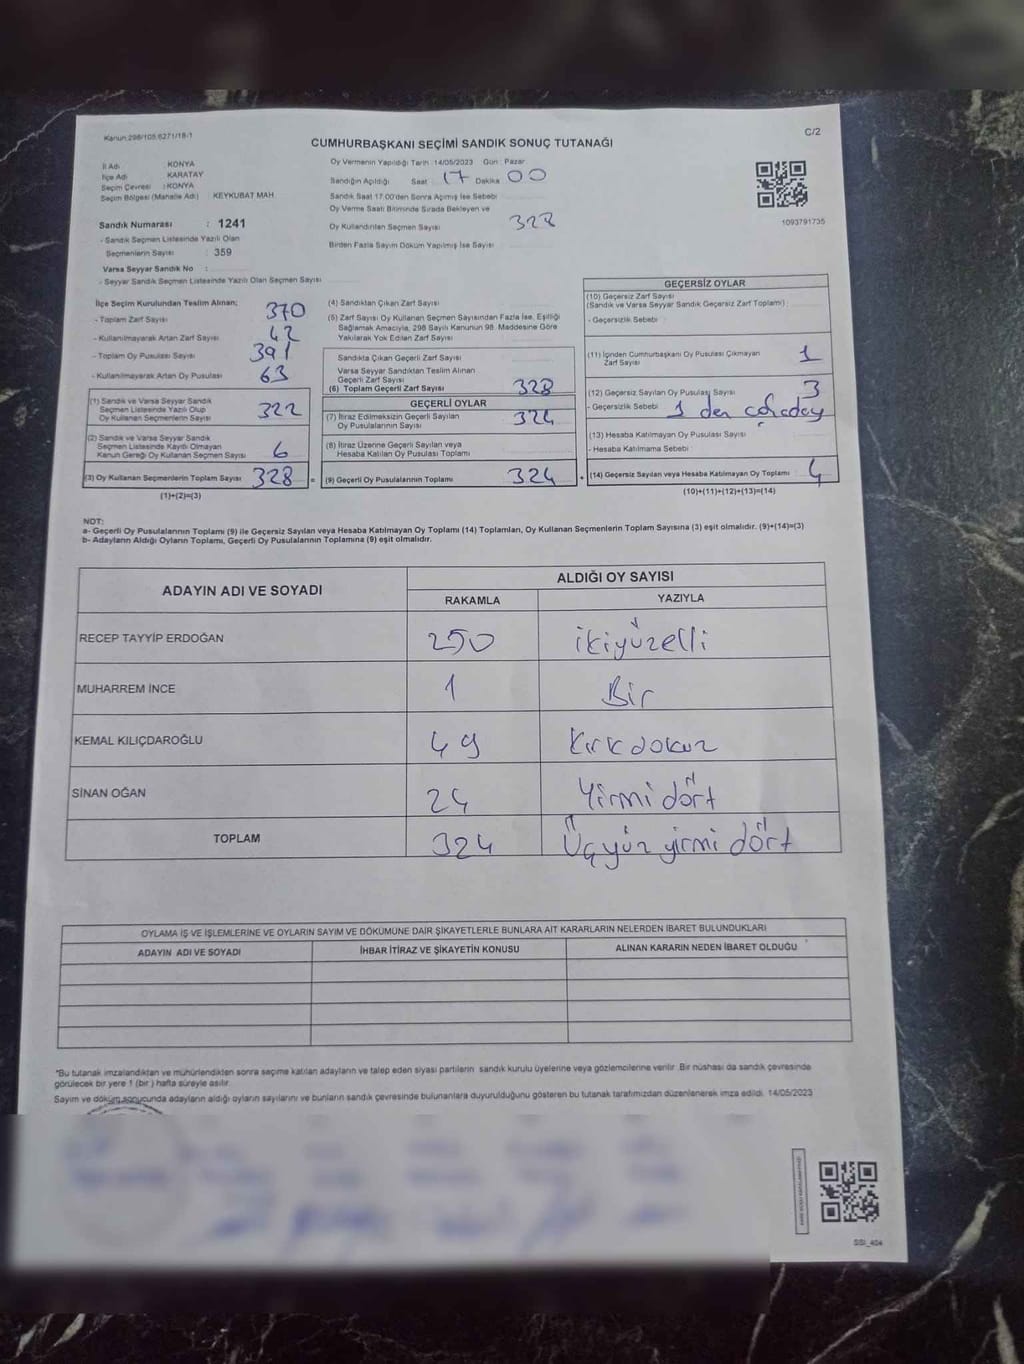 Kanun 298/105.6271/18-1
C/2
CUMHURBAŞKANI SEÇİMİ SANDIK SONUÇ TUTANAĞI
İl Adı : KONYA
İlçe Adı : KARATAY
Seçim Çevresi : KONYA
Seçim Bölgesi (Mahalle Adı) KEYKUBAT MAH
Sandık Numarası : 1241
- Sandık Seçmen Listesinde Yazılı Olan
Seçmenlerin Sayısı : 359
Varsa Seyyar Sandık No :
- Seyyar Sandık Seçmen Listesinde Yazılı Olan Seçmen Sayısı
Oy Vermenin Yapıldığı Tarih :14/05/2023 Gün : Pazar
Sandığın Açıldığı Saat : 17 Dakika 00
Sandık Saat 17.00'den Sonra Açımış İse Sebebi
Oy Verme Saati Bitiminde Sırada Bekleyen ve
Oy Kullandırılan Seçmen Sayısı 328
Birden Fazla Sayım Döküm Yapılmış İse Sayısı
1093791735
İlçe Seçim Kurulundan Teslim Alınan;
- Toplam Zarf Sayısı 370
- Kullanılmayarak Artan Zarf Sayısı 42
- Toplam Oy Pusulası Sayısı 391
- Kullanılmayarak Artan Oy Pusulası 63
(1) Sandık ve Varsa Seyyar Sandık
Seçmen Listesinde Yazılı Olup
Oy Kullanan Seçmenlerin Sayısı 322
(2) Sandık ve Varsa Seyyar Sandık
Seçmen Listesinde Kayıtlı Olmayan
Kanun Gereği Oy Kullanan Seçmen Sayısı 6
(3) Oy Kullanan Seçmenlerin Toplam Sayısı 328 =
(1)+(2)=(3)
(4) Sandıktan Çıkan Zarf Sayısı
(5) Zarf Sayısı Oy Kullanan Seçmen Sayısından Fazla İse, Eşitliği
Sağlamak Amacıyla, 298 Sayılı Kanunun 98. Maddesine Göre
Yakılarak Yok Edilen Zarf Sayısı
Sandıkta Çıkan Geçerli Zarf Sayısı
Varsa Seyyar Sandıktan Teslim Alınan
Geçerli Zarf Sayısı
(6) Toplam Geçerli Zarf Sayısı 328
GEÇERLİ OYLAR
(7) İtiraz Edilmeksizin Geçerli Sayılan
Oy Pusulasının Sayısı 324
(8) İtiraz Üzerine Geçerli Sayılan veya
Hesaba Katılan Oy Pusulası Toplamı
(9) Geçerli Oy Pusulalarının Toplamı 324 +
GEÇERSİZ OYLAR
(10) Geçersiz Zarf Sayısı
(Sandık ve Varsa Seyyar Sandık Geçersiz Zarf Toplamı)
- Geçersizlik Sebebi
(11) İçinden Cumhurbaşkanı Oy Pusulası Çıkmayan
Zarf Sayısı 1
(12) Geçersiz Sayılan Oy Pusulası Sayısı 3
- Geçersizlik Sebebi 1 den
(13) Hesaba Katılmayan Oy Pusulası Sayısı
- Hesaba Katılmama Sebebi
(14) Geçersiz Sayılan veya Hesaba Katılmayan Oy Toplamı 4
(10)+(11)+(12)+(13)=(14)
NOT:
a- Geçerli Oy Pusulalarının Toplamı (9) ile Geçersiz Sayılan veya Hesaba Katılmayan Oy Toplamı (14) Toplamları, Oy Kullanan Seçmenlerin Toplam Sayısına (3) eşit olmalıdır. (9)+(14)=(3)
b- Adayların Aldığı Oyların Toplamı, Geçerli Oy Pusulalarının Toplamına (9) eşit olmalıdır.
ADAYIN ADI VE SOYADI
ALDIĞI OY SAYISI
RAKAMLA YAZIYLA
RECEP TAYYİP ERDOĞAN 250 ikiyüzelli
MUHARREM İNCE 1 Bir
KEMAL KILIÇDAROĞLU 49 Kırkdokuz
SİNAN OĞAN 24 Yirmi dört
TOPLAM 324 Üçyüz yirmi dört
OYLAMA İŞ VE İŞLEMLERİNE VE OYLARIN SAYIM VE DÖKÜMÜNE DAİR ŞİKAYETLERLE BUNLARA AİT KARARLARIN NELERDEN İBARET BULUNDUKLARI
ADAYIN ADI VE SOYADI İHBAR İTİRAZ VE ŞİKAYETİN KONUSU ALINAN KARARIN NEDEN İBARET OLDUĞU
*Bu tutanak imzalandıktan ve mühürlendikten sonra seçime katılan adayların ve talep eden siyasi partilerin sandık kurulu üyelerine veya gözlemcilerine verilir. Bir nüshası da sandık çevresinde
görülecek bir yere 1 (bir ) hafta süreyle asılır.
Sayım ve döküm sonucunda adayların aldığı oyların sayılarını ve bunların sandık çevresinde bulunanlara duyurulduğunu gösteren bu tutanak tarafımızdan düzenlenerek imza edildi. 14/05/2023
SSI_404